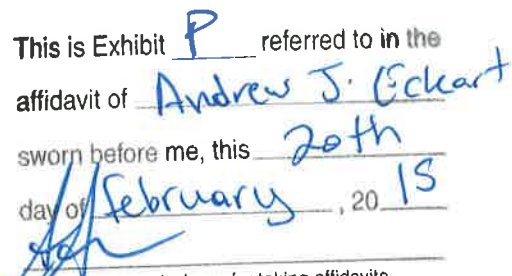 This is Exhibit P referred to in the
affidavit of Andrew J. Eckart
sworn before me, this 20th
day of february, 20 15
for taking affidavits